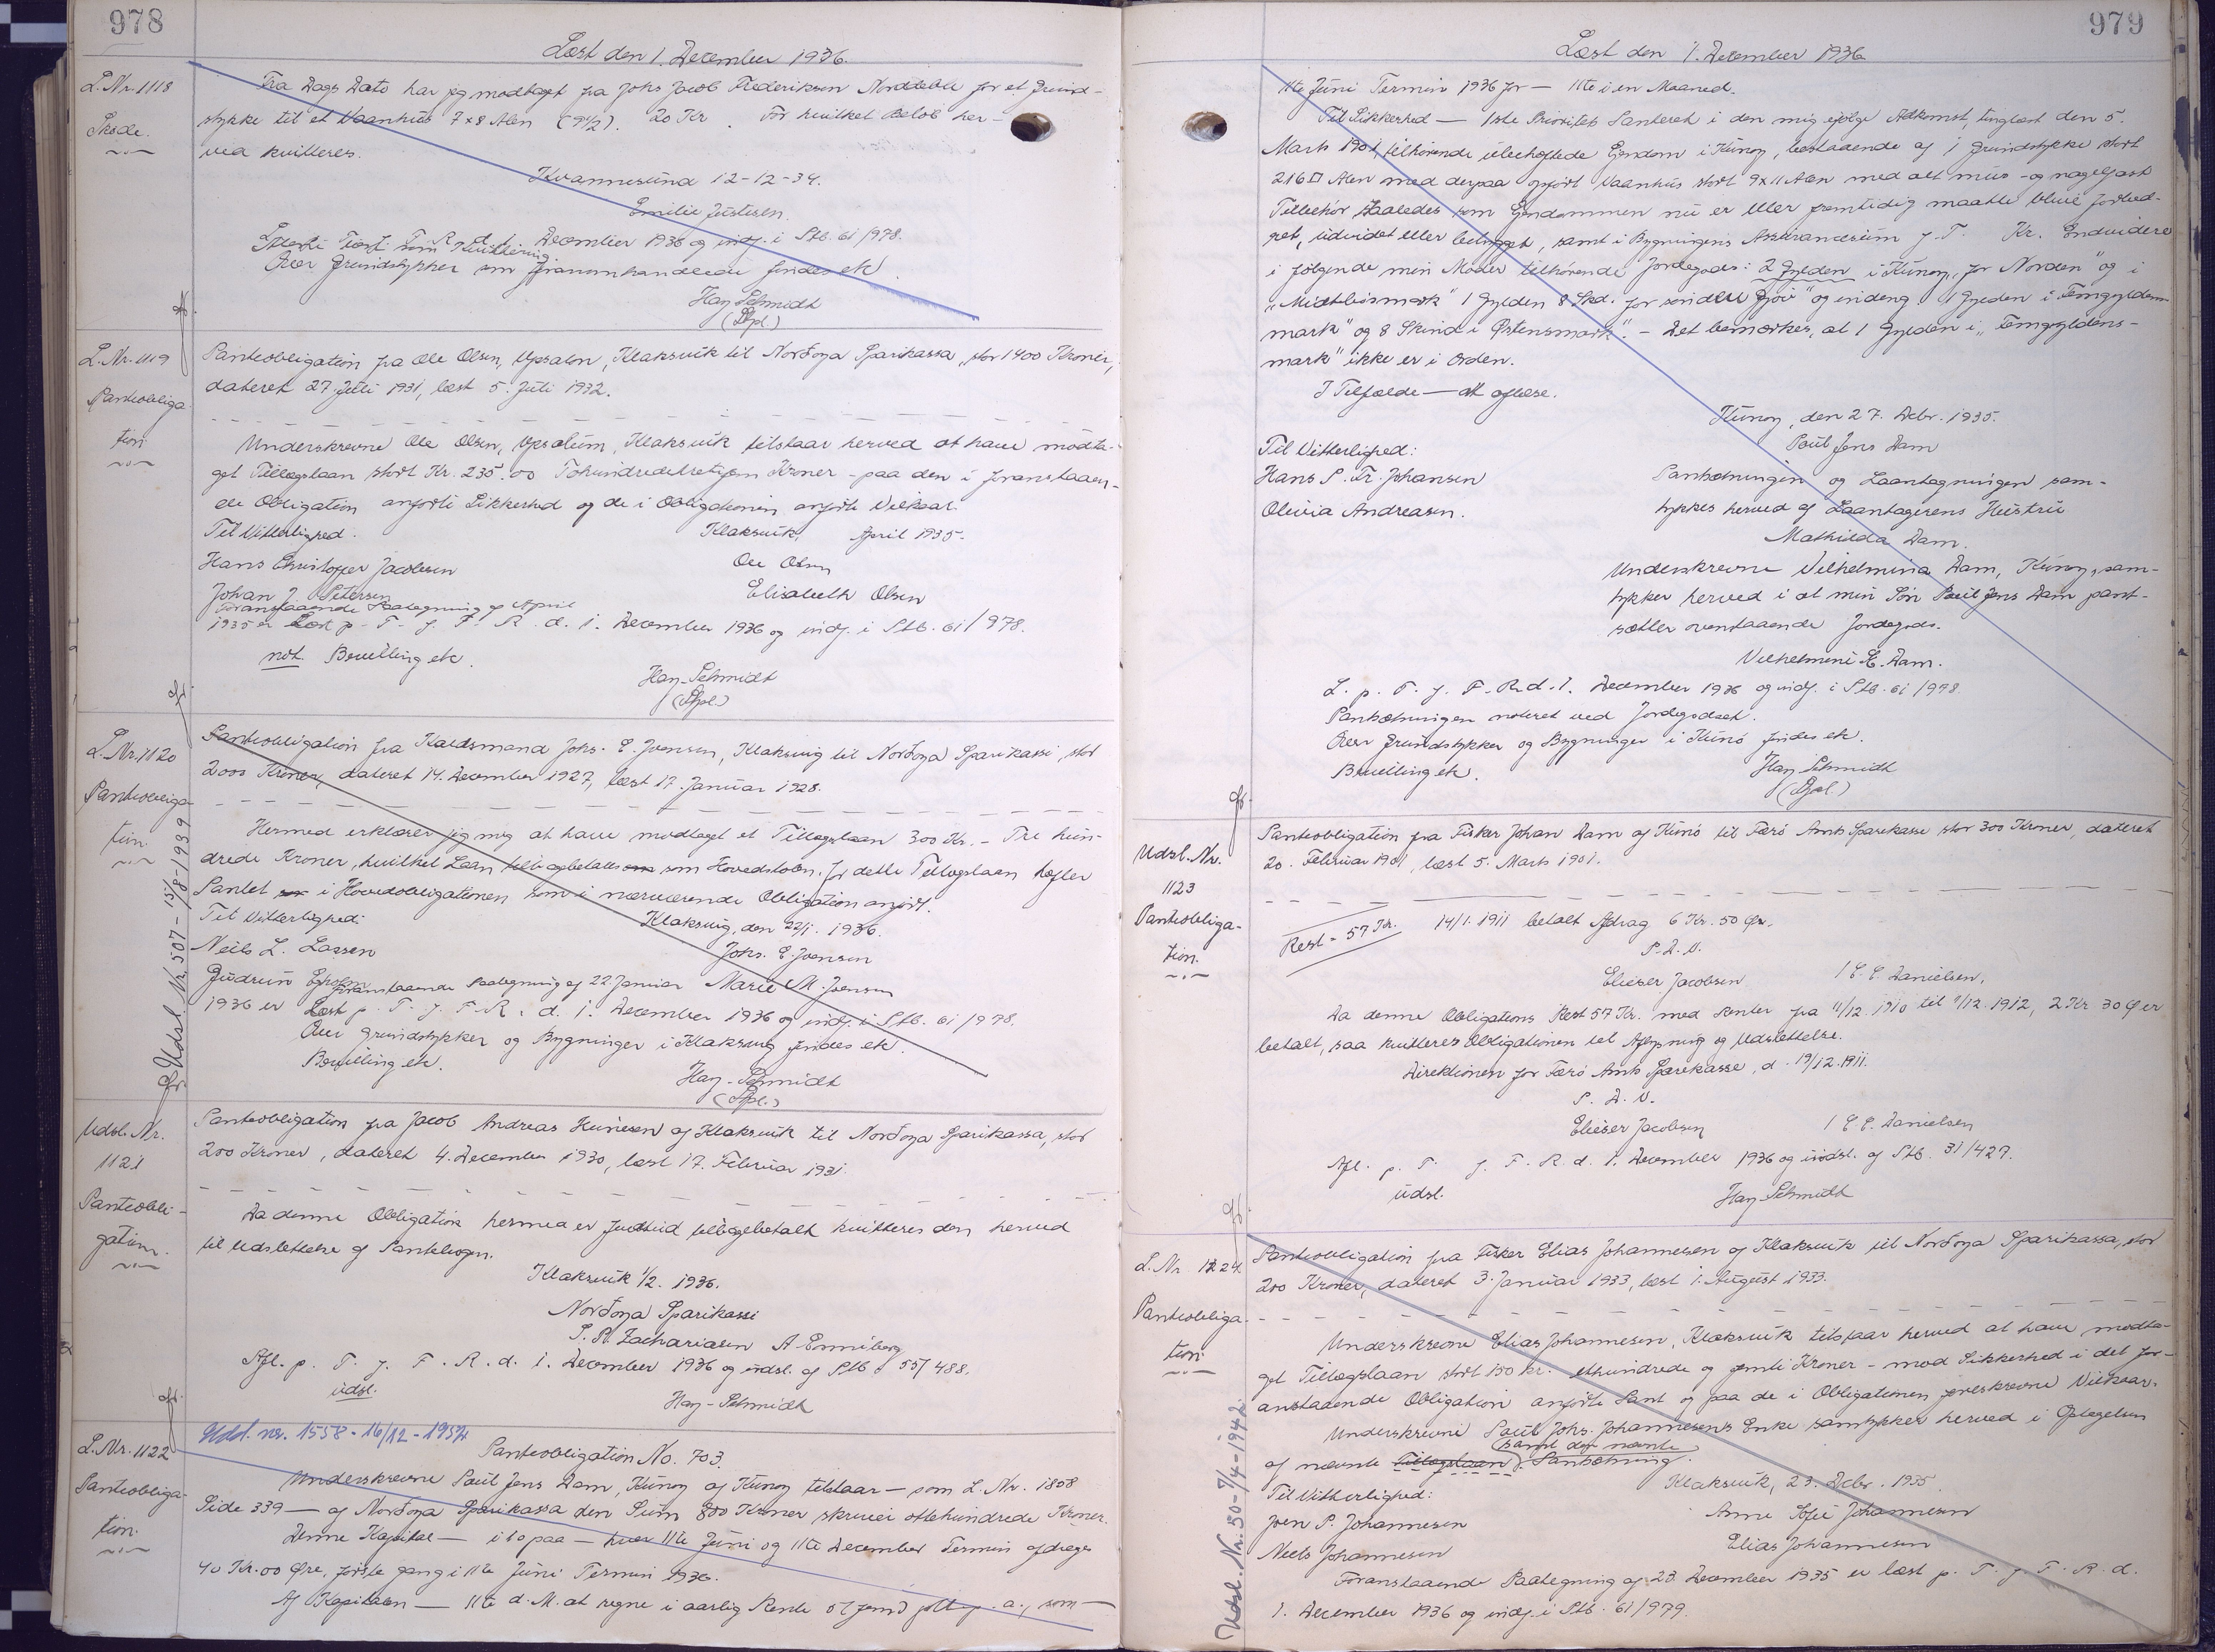 978
Læst den 1. December 1936.
L. Nr. 1118
Skøde.
Fra Dags Dato har jeg modtaget fra Johs Jacob Frederiksen Norddeble for et Grund-
stykke til et Vaanhus 7 x 8 Alen (9½). 20 Kr. For hvilket Beløb her-
ved kvitteres.
Kvannesund 12-12-34.
Emilie Justesen.
T. F. R. d. 1. December 1936 og indf. i Skb. 61/978.
som Kvittering.
Over Grundstykker som foranomhandlede findes ek.
Hay-Schmidt
(Dpl.)
L. Nr. 1119
Panteobliga-
tion.
Panteobligation fra Ole Olsen, Upsalon, Klaksvík til Norðoya Sparikassa, stor 1400 Kroner,
dateret 27. Juli 1931, læst 5. Juli 1932.
Underskrevne Ole Olsen, Upsalum, Klaksvík tilstaar herved at have modta-
get Tillægslaan stort Kr. 235.00 Tohundredetretifem Kroner - paa den i foranstaaen-
de Obligation anførte Sikkerhed og de i Obligationen anførte Vilkaar.
Til Vitterlighed.
Klaksvík, April 1935.
Hans Christoffer Jacobsen
Ole Olsen
Johan J. Petersen
Elisabeth Olsen
Foranstaaende Paategning af April
1935 er Læst p. T. f. F. R. d. 1. December 1936 og indf. i Skb. 61/978.
not. Bevilling ek.
Hay-Schmidt
(Dpl.)
L. Nr. 1120
Panteobliga-
tion.
Udsl. Nr. 507 - 15/8-1939
Panteobligation fra Handsmand Johs. E. Joensen, Klaksvig til Norðoya Sparikassi, stor
2000 Kroner, dateret 14. December 1927, læst 17. Januar 1928.
Hermed erklærer jeg mig at have modtaget et Tillægslaan 300 Kr. - Tre hun-
drede Kroner, hvilket Laan tilbagebetales som Hovedstolen. For dette Tillægslaan hæfter
Pantet i Hovedobligationen som i nærværende Obligation anført.
Til Vitterlighed:
Klaksvig, den 22/1. 1936.
Neils L. Lassen
Johs. E. Joensen
Gudrun Egholm
Marie M. Joensen
Foranstaaende Paategning af 22 Januar
1936 er Læst p. T. f. F. R. d. 1. December 1936 og indf. i Skb. 61/978.
Over Grundstykker og Bygninger i Klaksvig findes ek.
Bevilling ek.
Hay-Schmidt
(Dpl.)
Udsl. Nr.
1121
Panteobli-
gation.
Panteobligation fra Jacob Andreas Kunesen af Klaksvík til Norðoya Sparikassa, stor
200 Kroner, dateret 4. December 1930, læst 17. Februar 1931.
Da denne Obligation hermed er fuldtud tilbagebetalt kvitteres den herved
til Udslettelse af Pantebogen.
Klaksvík 1/2. 1936.
Norðoya Sparikassi
S. P. Zachariasen A. Enniberg
Afl. p. T. f. F. R. d. 1. December 1936 og udsl. af Skb. 55/488.
udsl.
Hay-Schmidt
L. Nr. 1122
Pantobliga-
tion.
Udsl. nr. 1558 - 16/12 - 1954
Panteobligation No. 703.
Underskrevne Poul Jens Dam, Kunoy af Kunoy tilstaar — som L. Nr. 1808
Side 339 — af Norðoya Sparikassa den Sum 800 Kroner skriver ottehundrede Kroner.
Denne Kapital — i 10 paa — hver 11te Juni og 11te December Termin afdrages
40 Kr. 00 Øre, første gang i 11te Juni Termin 1936.
Af Kapitalen — 11te d. M. at regne i aarlig Rente 5 (fem) pCt. p. a., som —
979
Læst den 1. December 1936
11te Juni Termin 1936 for — 11te i en Maaned.
Til Sikkerhed — 1ste Prioritets Panteret i den mig ifølge Adkomst, tinglæst den 5.
Marts 1901, tilhørende ubehæftede Ejendom i Kunoy, bestaaende af 1 Grundstykke stort
216 □ Alen med derpaa opført Vaanhus stort 9 x 11 Alen med alt mur- og nagelfast
Tilbehør saaledes som Ejendommen nu er eller fremtidig maatte blive forbed-
ret, udvidet eller bebygget, samt i Bygningens Assurancesum f. T. Kr. Endvidere
i følgende min Moder tilhørende Jordegods: 2 Gylden i Kunoy, for Norden" og i
"Midtbøsmark" 1 Gylden 8 Skd. for sønden Gjov" og endeng 1 Gylden i "Femgylden-
mark" og 8 Skind i Østensmark". - Det bemærkes, at 1 Gylden i "Femgyldens-
mark" ikke er i Orden.
I Tilfælde — at aflæse.
Kunoy, den 27. Debr. 1935.
Til Vitterlighed:
Poul Jens Dam
Hans P. Fr. Johansen
Olivia Andreasen.
Pantsætningen og Laantagningen sam-
tykkes herved af Laantagerens Hustru
Mathilda Dam.
Underskrevne Vilhelmina Dam, Kunoy, sam-
tykker herved i at min Søn Poul Jens Dam pant-
sætter ovenstaaende Jordegods.
Vilhelmine K. Dam.
L. p. T. f. F. R. d. 1. December 1936 og indf. i Skb. 61/978.
Pantsætningen noteret ved Jordegodset.
Over Grundstykker og Bygninger i Kunø findes ek.
Bevilling ek.
Hay-Schmidt
(Dpl.)
Udsl. Nr.
1123
Pantobliga-
tion.
Panteobligation fra Fisker Johan Dam af Kunø til Færø Amts Sparekasse stor 300 Kroner, dateret
20. Februar 1901, læst 5. Marts 1901.
Rest = 57 Kr.
14/1. 1911 betalt Afdrag 6 Kr. 50 Øre.
P. D. V.
Elieser Jacobsen / C. C. Danielsen.
Da denne Obligations Rest 57 Kr. med Renter fra 11/12. 1910 til 11/12. 1912, 2 Kr 30 Ø er
betalt, saa kvitteres Obligationen til Aflysning og Udslettelse.
Direktionen for Færø Amts Sparekasse, d. 19/12. 1911.
P. D. V.
Elieser Jacobsen / C. C. Danielsen
Afl. p. T. f. F. R. d. 1. December 1936 og udsl. af Skb. 31/427.
udsl.
Hay-Schmidt
L. Nr. 1124
Panteobliga-
tion.
Udsl. Nr. 50 - 7/4 - 1942.
Panteobligation fra Fisker Elias Johannesen af Klaksvík til Norðoya Sparikassa, stor
200 Kroner, dateret 3. Januar 1933, læst 1. August 1933.
Underskrevne Elias Johannesen, Klaksvík tilstaar herved at have modta-
get Tillægslaan stort 150 kr. ethundrede og femti Kroner - mod Sikkerhed i det for-
anstaaende Obligation anførte Pant og paa de i Obligationen foreskrevne Vilkaar.
Underskrevne Poul Johs. Johannesens Enke samtykker herved i Optagelsen
af nævnte Tillægslaan (samt den nævnte) Pantsætning.
Klaksvík, 23. Debr. 1935.
Til Vitterlighed:
Anne Sofie Johannesen
Joen P. Johannesen
Elias Johannesen
Niels Johannesen
Foranstaaende Paategning af 23. December 1935 er læst p. T. f. F. R. d.
1. December 1936 og indf. i Skb. 61/979.